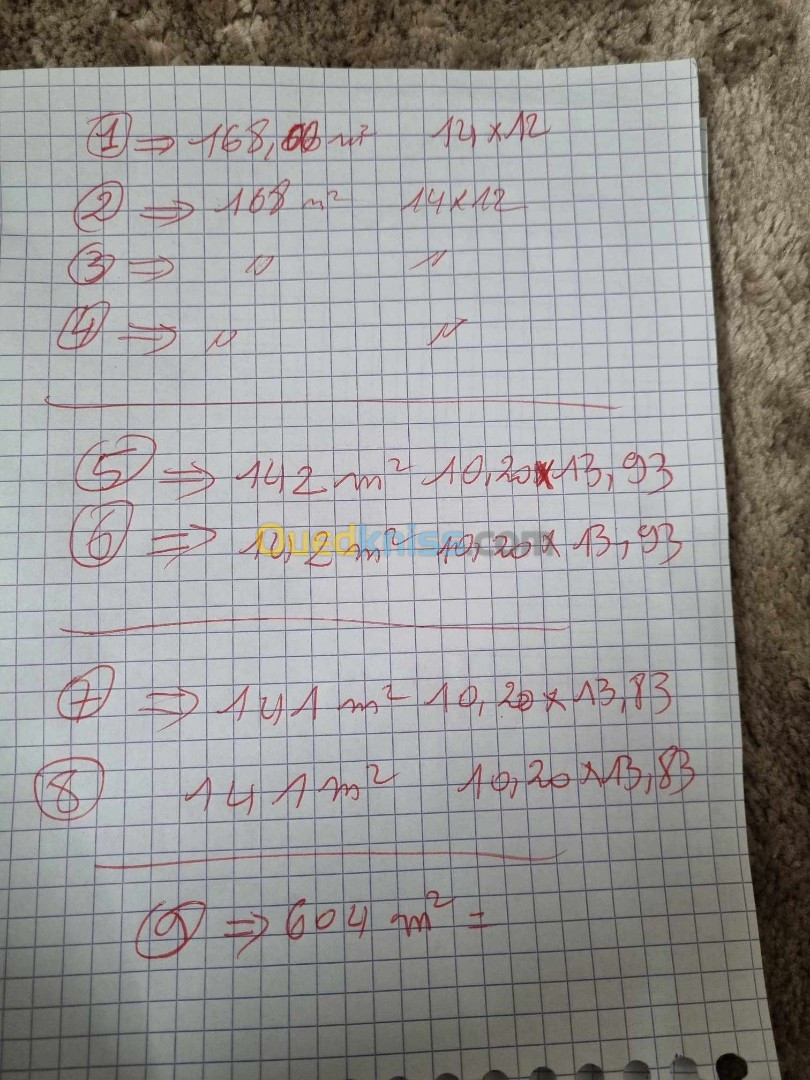 ① ⇒ 168,00 m² 14x12
② ⇒ 168 m² 14x12
③ ⇒ " "
④ ⇒ " "
⑤ ⇒ 142 m² 10,20x13,93
⑥ ⇒ 142 m² 10,20x13,93
Ouedkniss.com
⑦ ⇒ 141 m² 10,20x13,83
⑧ 141 m² 10,20x13,83
⑨ ⇒ 604 m² =